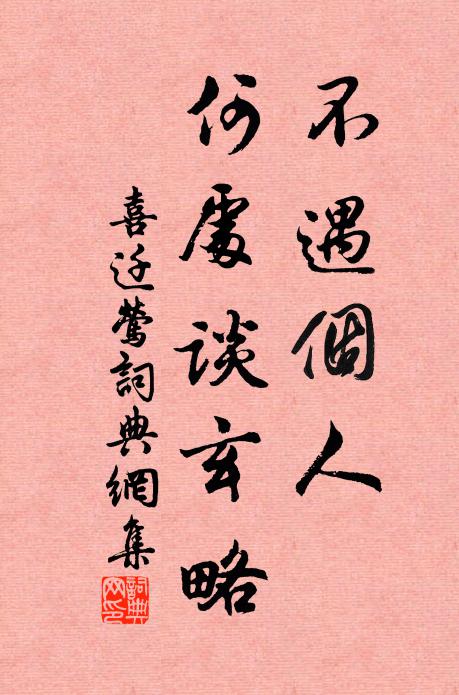 不遇個人
何處談玄略
喜迁鶯詞典網集
詞典網印